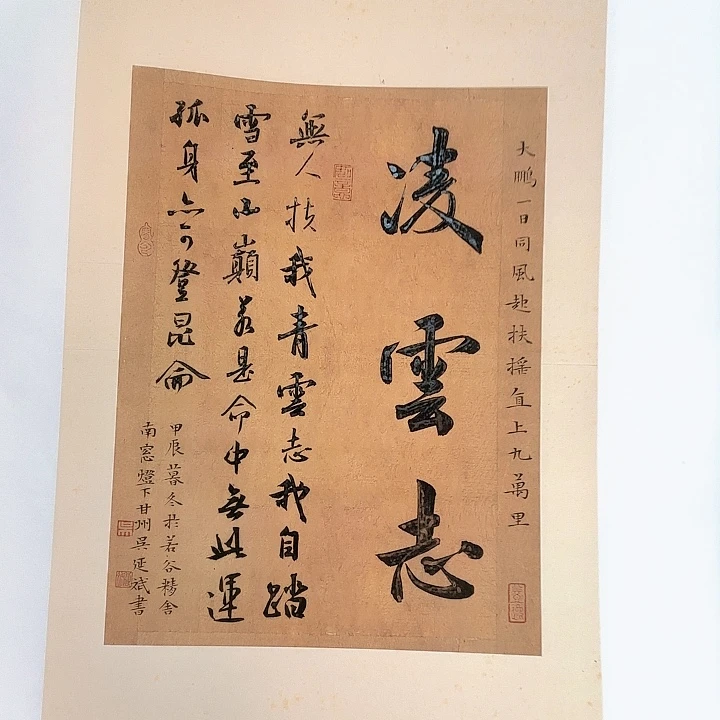 大鵬一日同風起扶摇直上九萬里
凌雲志
無人扶我青雲志我自踏
雪至山巔若是命中無此運
孤身亦可登昆侖
甲辰暮冬於若谷精舍
南窓燈下甘州吴延斌書